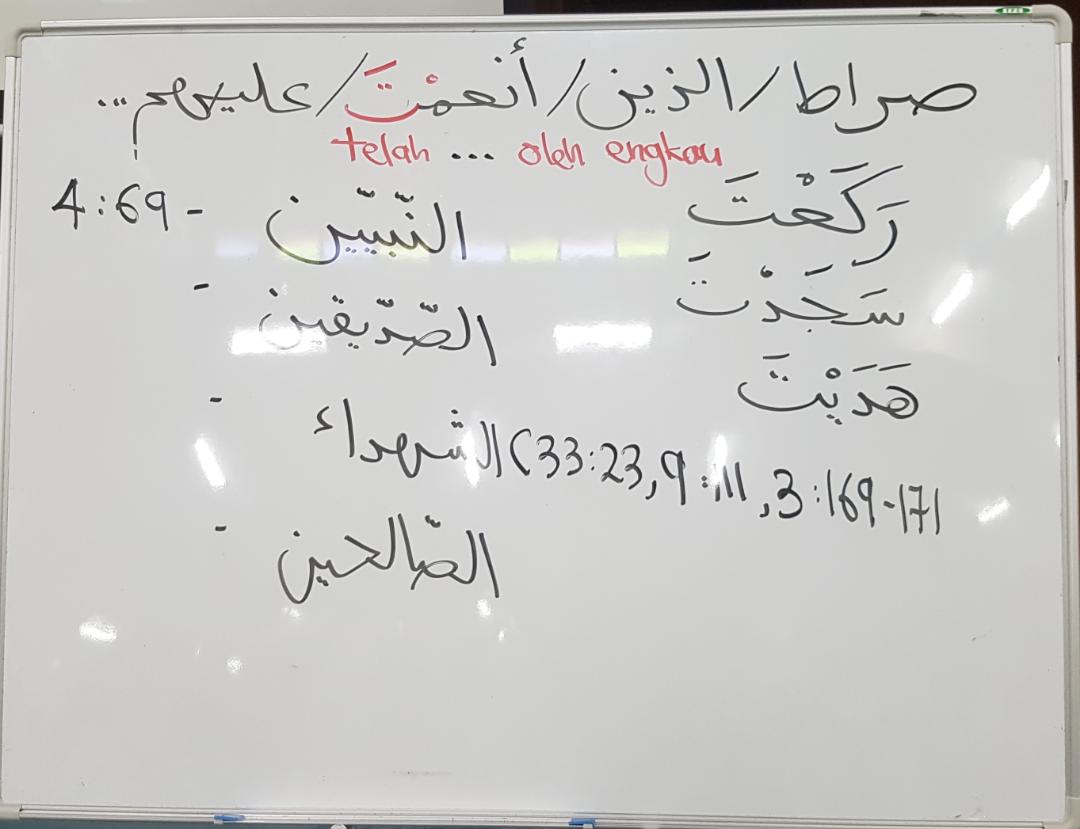 صراط/الذين/أنعمْتَ/عليهم...
telah ... oleh engkau
رَكَعْتَ
سَجَدْتَ
هَدَيْتَ
4:69 - النّبيّين
- الصّدّيقين
- الشهداء (33:23, 9:111, 3:169-171
- الصّالحين